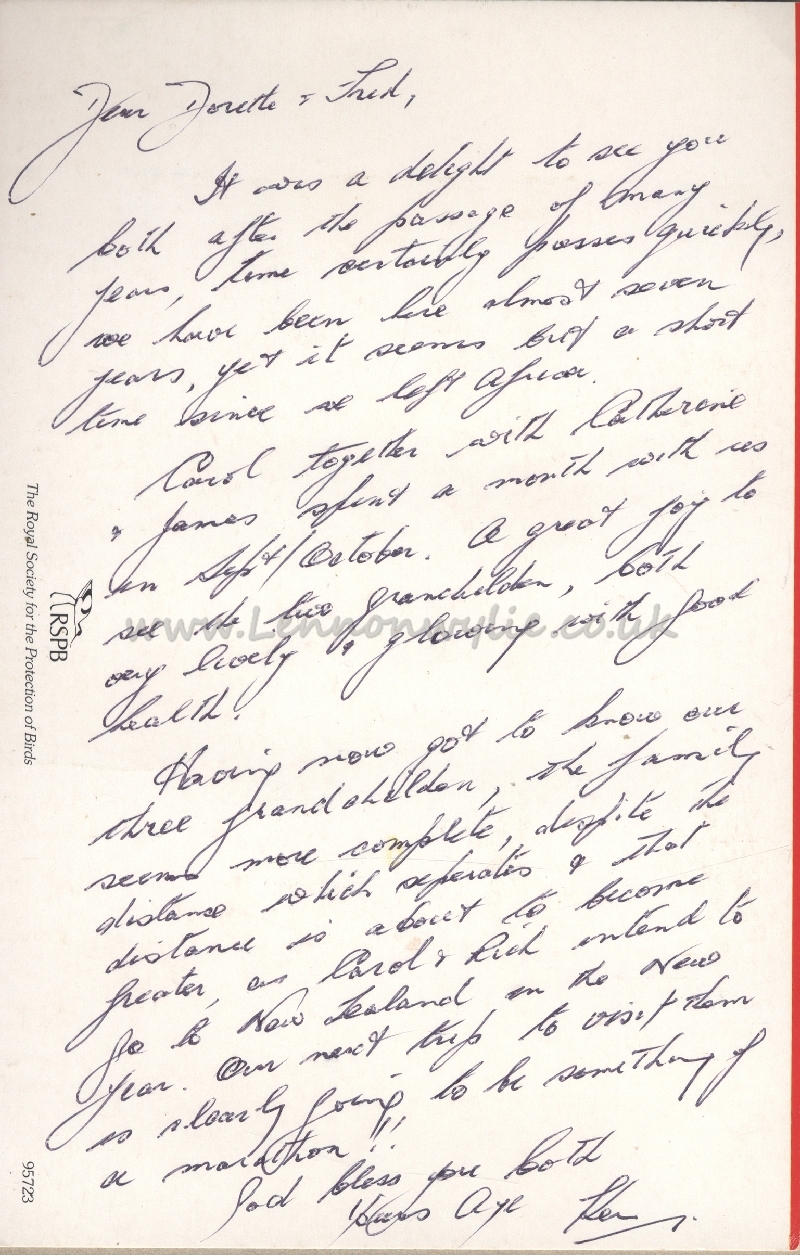 Dear Dorette & Fred,
It was a delight to see you
both after the passage of many
years, time certainly passes quickly,
we have been here almost seven
years, yet it seems but a short
time since we left Africa.
Carol together with Catherine
& James spent a month with us
in Sept/October. A great joy to
see the two granchelden, both
very lively & glowing with good
health.
Having now got to know our
three grandchelden, the family
seems more complete, despite the
distance which seperates & that
distance is about to become
greater, as Carol & Rich intend to
go to New Zealand in the New
Year. Our next trip to visit them
is clearly going to be something of
a marathon!!
God bless you both
Yours Aye Ken
The Royal Society for the Protection of Birds
RSPB
95723
www.Lennonwylie.co.uk